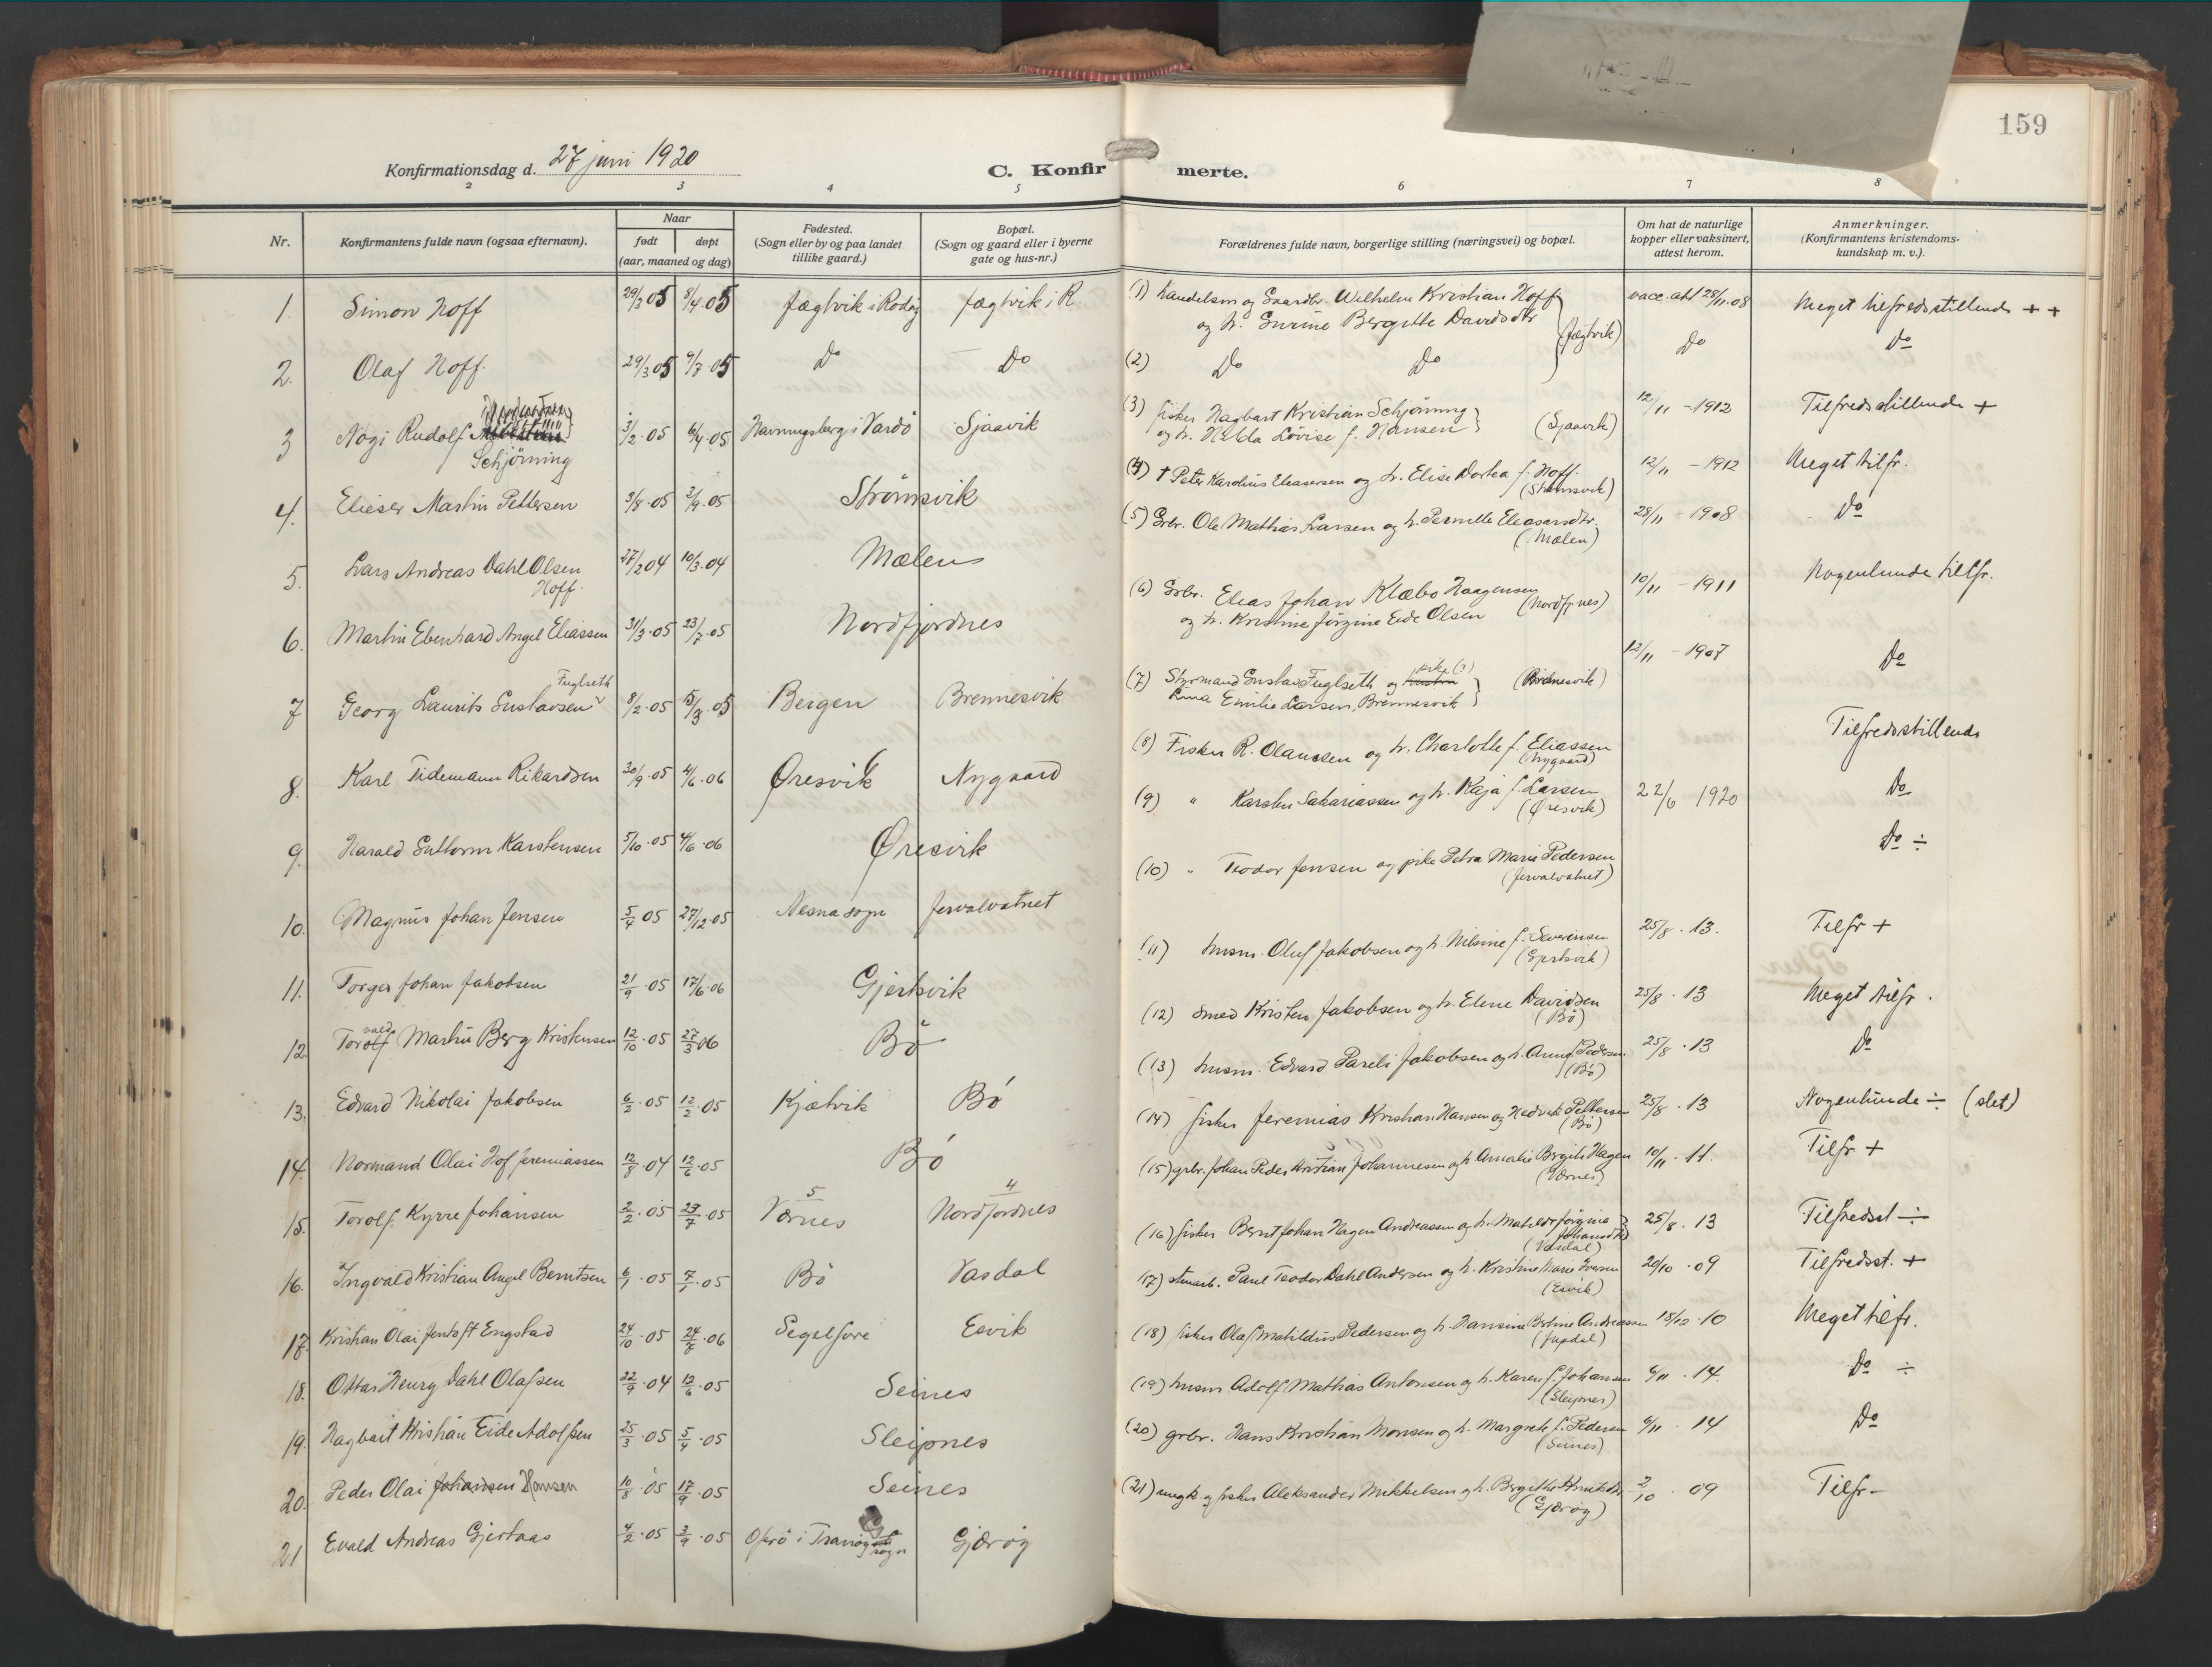 159
Konfirmationsdag d. 27 juni 1920
C. Konfirmerte.
2 3 4 5 6 7 8
Nr.
Konfirmantens fulde navn (ogsaa efternavn).
Naar
født døpt
(aar, maaned og dag)
Fødested.
(Sogn eller by og paa landet
tillike gaard.)
Bopæl.
(Sogn og gaard eller i byerne
gate og hus-nr.)
Forældrenes fulde navn, borgerlige stilling (næringsvei) og bopæl.
Om hat de naturlige
kopper eller vaksinert,
attest herom.
Anmerkninger.
(Konfirmantens kristendoms-
kundskap m. v.).
1. Simon Hoff 29/3 05 8/4.05 Jægtvik i Rødøy Jægtvik i R.
2. Olaf Hoff. 29/3 05 9/7.05 Do Do
3 Nogi Rudolf
Schjörning 3/2.05 6/4.05 Havningsberg i Vardö Sjaavik
4. Elieser Martin Pettersen 3/8.05 2/9.05 Strömsvik
5. Lars Andreas Dahl Olsen
Hoff. 27/2 04 10/3.04 Mælen
6. Martin Ebenhard Angel Eliassen 31/3.05 23/7.05 Nordfjordnes
7 Georg Laurits Gustavsen Fuglseth 8/2.05 5/3.05 Bergen Brennesvik
8. Karl Tidemann Rikardsen 30/9.05 4/6.06 Øresvik Nygaard
9. Harald Guttorm Karstensen 5/10.05 4/6.06 Øresvik
10. Magnus Johan Jensen 5/4 05 27/12.05 Nesna sogn Jervalvatnet
11. Torger Johan Jakobsen 21/9.05 17/6.06 Gjertsvik
12. Torolf vald Martin Berg Kristensen 12/10.05 27/3 06 Bö
13. Edvard Nikolai Jakobsen 6/2.05 12/2.05 Kjætvik Bö
14. Normand Olai Hof Jeremiassen 12/8.04 12/6.05 Bö
15. Torolf Kyrre Johansen 2/2.05 23/7.05 5 Værnes 4 Nordfjordnes
16. Ingvald Kristian Angel Berntsen 6/1.05 7/1.05 Bö Vasdal
17. Kristian Olai Jentoft Engstad 24/10.05 24/8.06 Segelfore Esvik
18. Ottar Henry Dahl Olafsen 22/9.04 12/6.05 Seines
19. Hagbart Kristian Eide Adolfsen 25/3.05 5/4.05 Sleipnes
20. Peder Olai Johansen Hansen 10/8.05 17/9.05 Seines
21 Evald Andreas Gjertaas 4/2.05 3/9.05 i Tranøy sogn Gjærøy
(1) Handelsm og Gaardbr. Wilhelm Kristian Hoff
og h. Gurine Bergitte Davidsdtr (Jægtvik) vacc. att 28/11.08 Meget tilfredsstillende ++
(2) Do Do Do Do
(3) fisker Hagbart Kristian Schjörning
og h. Hilda Lövise f. Hansen (Sjaavik) 12/11 - 1912 Tilfredsstillende +
(4) † Peter Karolius Eleasersen og h. Elise Dortea f. Hoff.
(Strömsvik) 12/11 - 1912 Meget tilfr.
(5) Grbr. Ole Mathias Larsen og h. Pernille Eleasarsdtr.
(Mælen) 28/11 - 1908 Do
(6) Grbr. Elias Johan Klæbo Haagensen
og h. Kristine Jörgine Eide Olsen (Nordfj.nes) 10/11 - 1911 Nogenlunde tilfr.
(7) Styrmand Gustav Fuglseth og hustru pike (?)
Lina Emilie Larsen, Brennesvik 12/11 - 1907 Do
(8) Fisker R. Olaussen og h. Charlotte f. Eliassen
(Nygaard) Tilfredsstillende
(9) " Karsten Sakariassen og h. Kaja f. Larsen
(Øresvik) 22/6 1920 Do
(10) " Teodor Jensen og pike Petra Marie Pedersen
(Jervalvatnet) Do ÷
(11) husm. Oluf Jakobsen og h. Nilsine f. Severinsen
(Gjertsvik) 25/8.13. Tilfr +
(12) Smed Kristen Jakobsen og h. Elene Davidsen
(Bö) 25/8.13 Meget tilfr.
(13) husm. Edvard Pareli Jakobsen og h. Anna f. Pedersen
(Bö) 25/8.13 Do
(14) fisker Jeremias Kristian Hansen og Hedvik Pettersen
(Bö) 25/8.13 Nogenlunde ÷ (slet)
(15) grbr. Johan Peder Kristian Johannesen og h Amalie Bergite Hagen
(Værnes) 10/11.11. Tilfr +
(16) fisker Bernt Johan Hagen Andreassen og h. Matilde Jörgine
Johansdtr
(Vasdal) 25/8.13 Tilfredsst ÷
(17) Paul Teodor Dahl Andersen og h. Kristine Marie Iversen
(Esvik) 20/10.09 Tilfredsst. +
(18) fisker Olaf Matildus Pedersen og h. Hansine Andreassen 15/12.10 Meget tilfr.
(19) husm Adolf Mathias Antonsen og h. Karen f. Johansen
(Sleipnes) 6/11.14. Do ÷
(20) grbr. Hans Kristian Monsen og h. Margrete f. Pedersen
(Seines) 6/11.14 Do
(21) ungk. og fisker Aleksander Mikkelsen og h. Bergitte
(Gjærøy) 2/10.09 Tilfr-